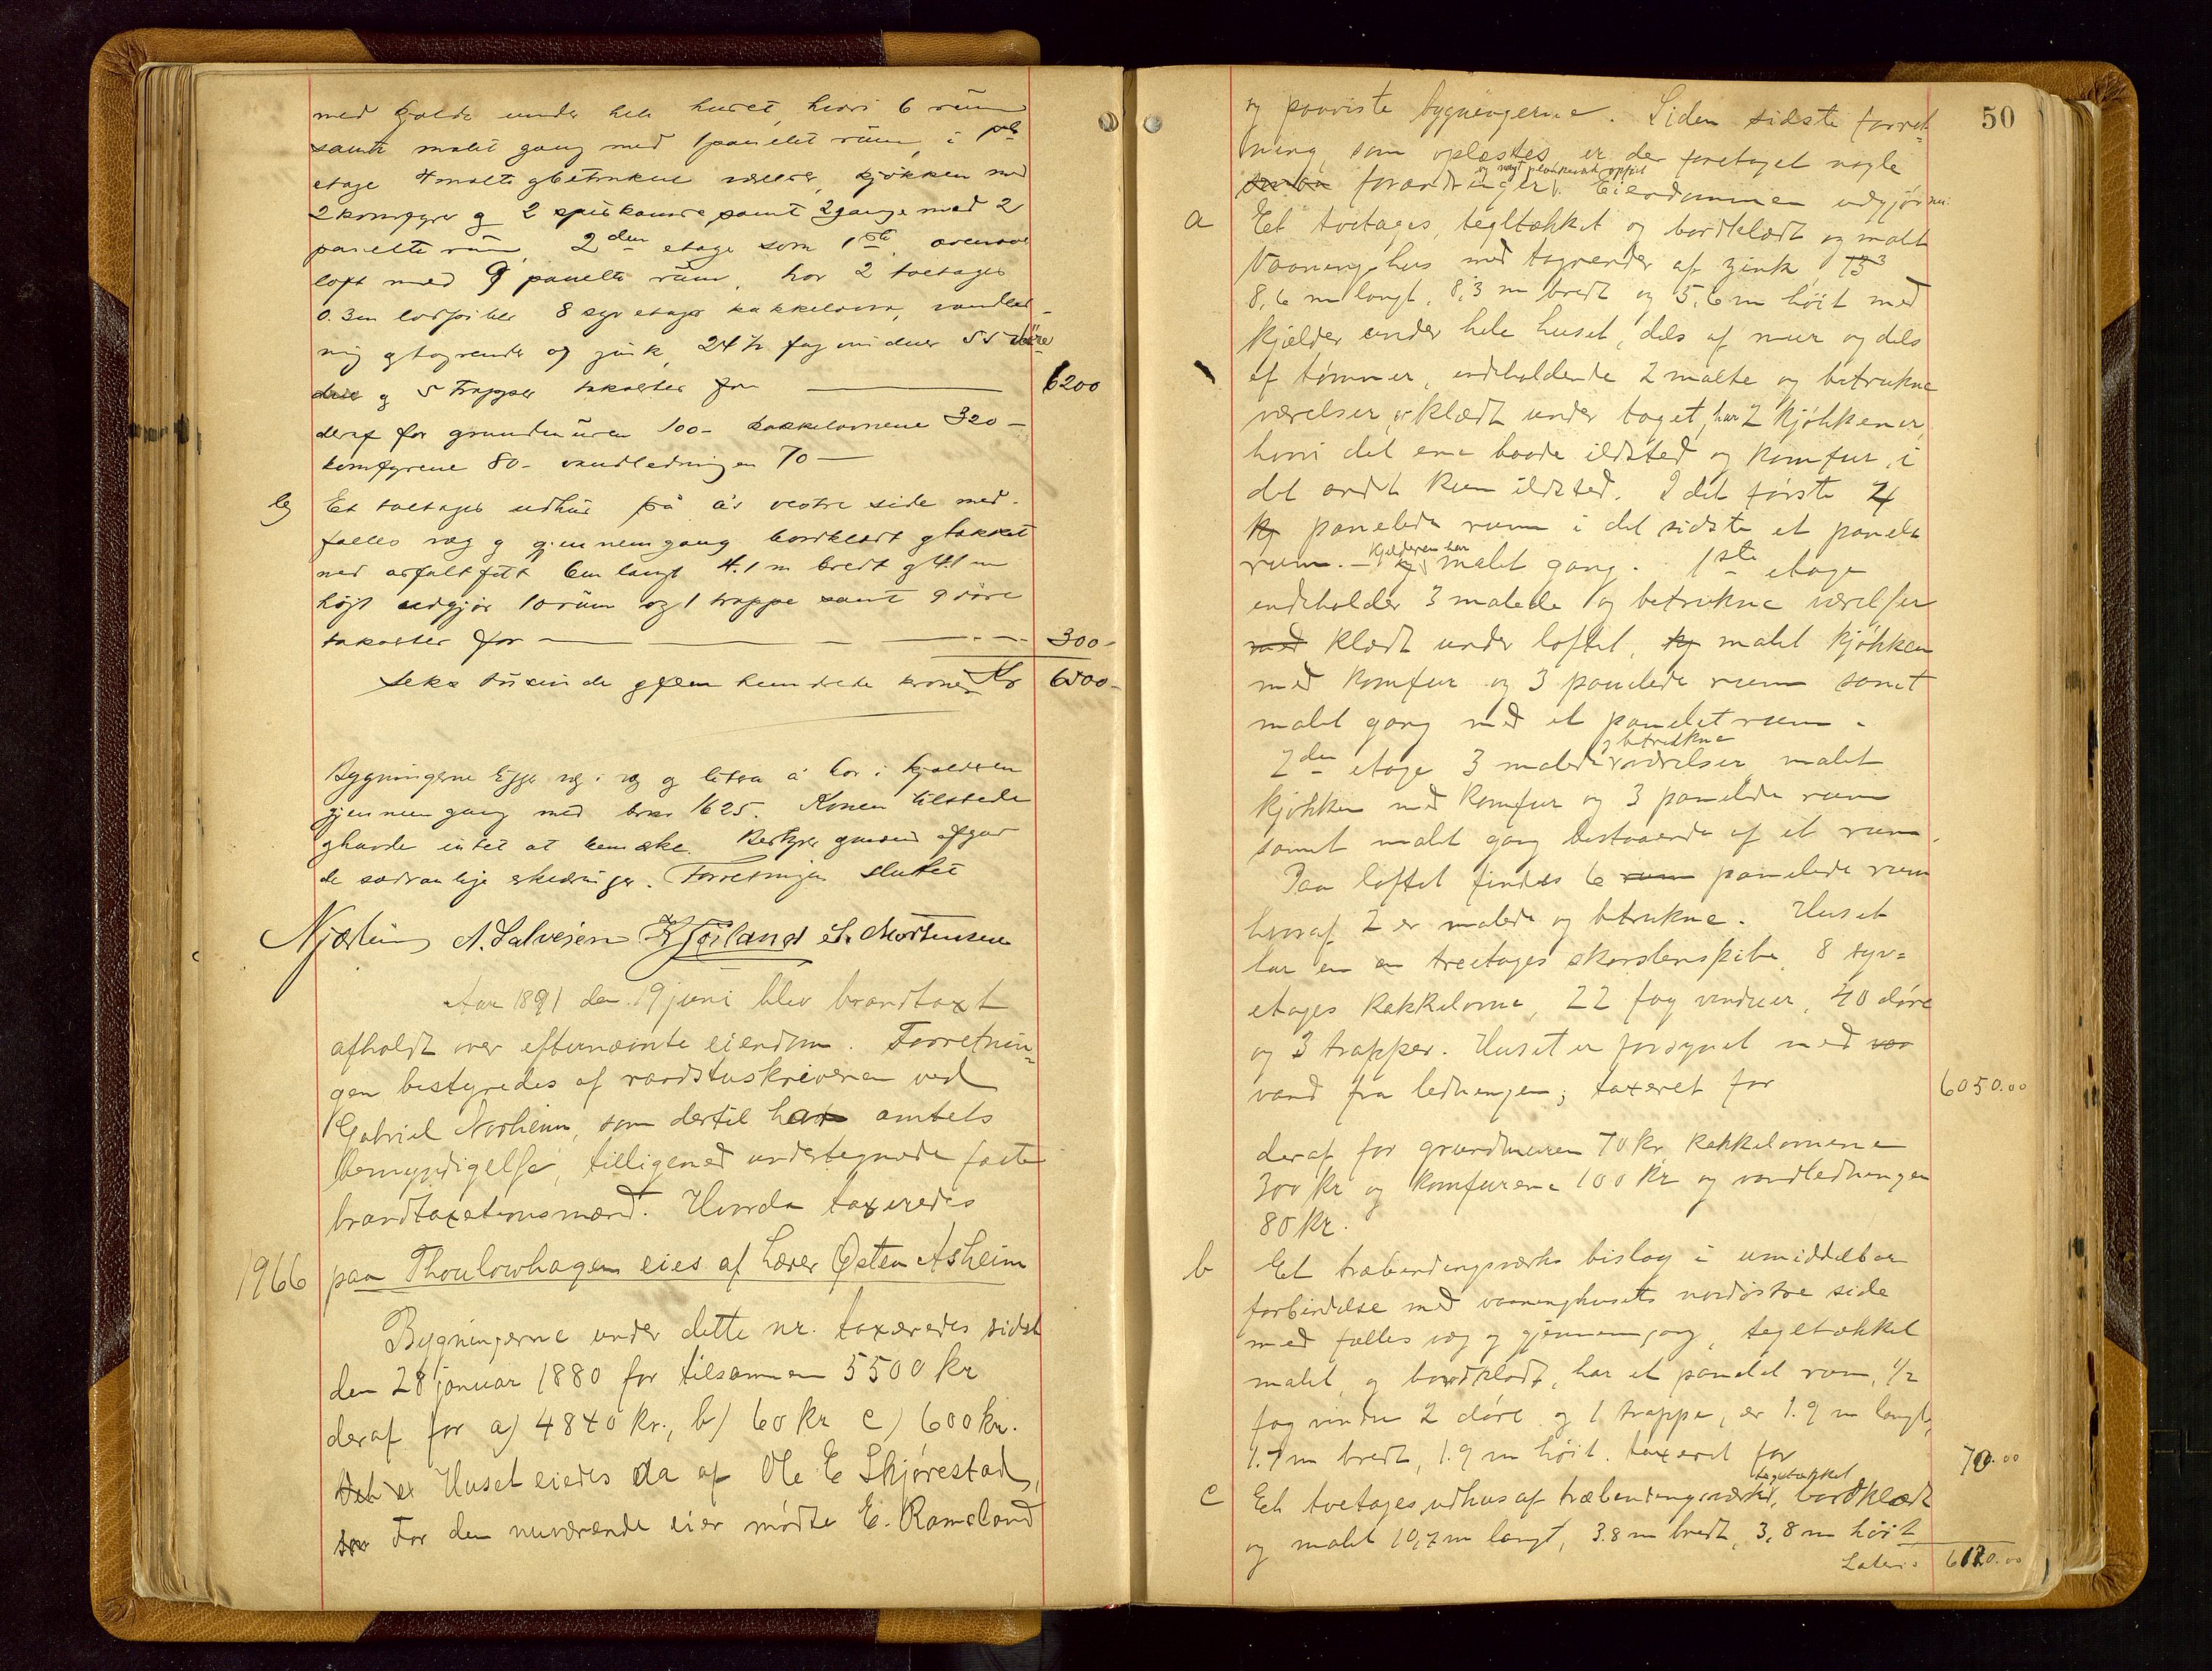 med kjelder under hele huset, hvori 6 rüm
samt malet gang med 1 panelet rüm, i 1ste
etage 4 malte g betrukne værelser, kjøkken med
2 komfyrer g 2 spiskamre samt 2 gange med 2
panelte rüm, 2den etage som 1ste, ovenover
loft med 9 panelte rüm, har 2 toetages
8 syv etages kakkelovne, vandled-
ning g tagrender og zink, 24½ fag vinduer 55 döre
g 5 trapper takseres for 6200
deraf for grundmüren 100- kakkelovnene 320-
komfyrene 80- vandledningen 70 —
b Et toetages udhüs på a's vestre side med
fælles væg g gjennemgang bordklædt g tækket
med asfaltfilt 6 m langt 4.1 m bredt g 4.1 m
højt udgjør 10 rüm og 1 trappe samt 9 döre
takseres for 300-
Seks tüsinde g fem hundrede kroner Kr 6500-
Bygningerne ligger væg i væg g litra a har i kjælderen
gjennemgang med brnr 1625. Konen tilstede
g havde intet at bemærke.
de sædvanlige erklæringer. Forretningen sluttet
A. Salvesen
Aar 1891 den 19 juni blev brandtaxt
afholdt over efternævnte eiendom. Forretnin-
gen bestyredes af raadstuskriveren ved
Gabriel Norheim, som dertil har amtets
bemyndigelse, tilligemed undertegnede faste
brandtaxationsmænd. Hvorda taxeredes
1966 paa Thoulowhagen eies af Lærer Østen Asheim
Bygningerne under dette nr. taxeredes sidst
den 28 januar 1880 for tilsammen 5500 kr
deraf for a) 4840 kr., b) 60 kr c) 600 kr.
Det er Huset eiedes da af Ole E Skjørestad,
som For den nuværende eier mødte E. Ramsland
50
og paaviste bygningerne. Siden sidste forret-
ning, som oplæstes er der foretaget nogle
forandringer. Eiendommen udgjør nu
a Et toetages, tegltækket og bordklædt og malt
Vaaningshus med tagrender af zink,
8,6 m langt, 8,3 m bredt og 5,6 m høit med
kjælder under hele huset, dels af mur og dels
af tømmer, indeholdende 2 malte og betrukne
værelser, er klædt under taget, har 2 kjøkkener,
hvori det ene baade ildsted og komfur, i
det andet kun ildsted. I det første 4
kj panelede rum i det sidste et panelet
rum. - Kjelderen har malet gang. 1ste etage
indeholder 3 malede og betrukne værelser
med klædt under loftet, kj malet kjøkken
med komfur og 3 panelede rum samt
malet gang med et panelet rum.
2den etage 3 malede og betrukne værelser, malet
kjøkken med komfur og 3 panelede rum
samt malet gang bestaaende af et rum.
Paa loftet findes 6 rum panelede rum
hvoraf 2 er malede og betrukne. Huset
har en en treetages skorstenspibe, 8 syv-
etages kakkelovne, 22 fag vinduer, 40 døre
og 3 trapper. Huset er forsynet med van
vand fra ledningen; taxeret for 6050.00
deraf for grundmuren 70 kr, kakkelovnene
300 kr og komfurene 100 kr og vandledningen
80 kr.
b Et træbindingsværks bislag i umiddelbar
forbindelse med vaaninghusets nordøstre side
med fælles væg og gjennemgang, tegltækket
malet, og bordklædt, har et panelet rum, ½
fag vindu 2 døre og 1 trappe, er 1.9 m langt,
1.7 m bredt, 1.9 m høit. taxeret for 70.00
c Et toetages udhus af træbindingsværk, tegltækket, bordklædt
og malet 10,7 m langt, 3.8 m bredt, 3,8 m høit
Lateris 6120.00